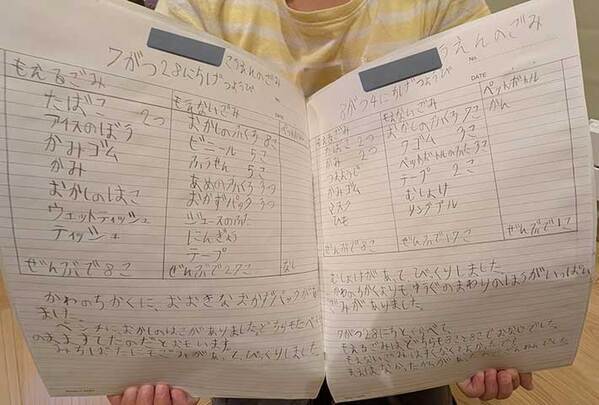 7がつ28にちげつようび
えんのごみ
もえるごみ
たばこ 2つ
アイスのぼう
かみゴム
かみ
おかしのはこ
ウェットティッシュ
ティッシュ
ぜんぶで8こ
もえないごみ
おかしのふくろ 8こ
ビニール 5こ
ふうせん 5こ
あめのふくろ 3つ
おかずパック 3つ
ジュースのふた
にんぎょう
テープ
ぜんぶで27こ
ペットボトル
なし
かわのちかくに、おおきなおかずパックがあり
ました。
ベンチに、おかしのはこがありました。どちらもたべ
のだとおもいます。
みちばたにもごみがあって、びっくりしました。
うえんのごみ
No.
8がつ4にちげつようび
DATE
もえるごみ
たばこ 2つ
かみ 2つ
つまようじ
かみゴム
マスク
ひも
ぜんぶで8こ
もえないごみ
おかしのふくろ 7こ
ワゴム 3こ
ペットボトルのふた 3こ
テープ 2こ
むしよけ
ぜんぶで17こ
ペットボトル
かん
ぜんぶで1こ
むしよけがあって、びっくりしました。
かわのちかくよりもゆうぐのまわりのほうがいっぱい
ごみがありました。
7がつ28にちとくらべて、
もえるごみは、どちらも8こと8こでおなじでした。
もえないごみは、すくなく